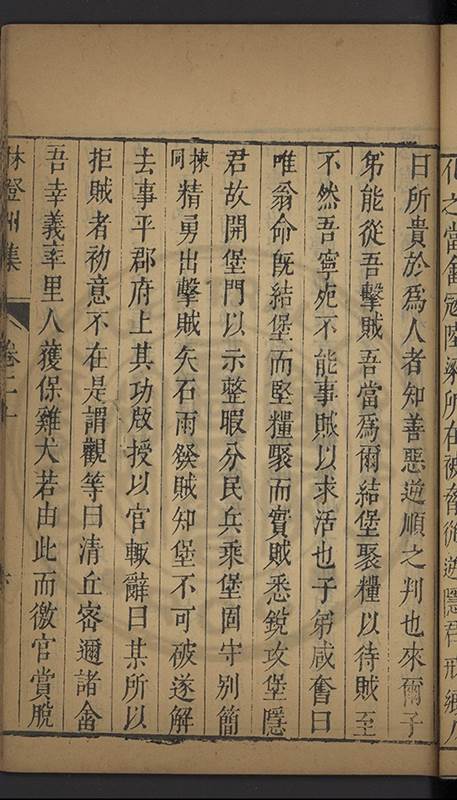 化之當畬冦陸梁所在被脅從逆隱君形
曰所貴於爲人者知善惡逆順之判也來爾子
弟能從吾擊賊吾當爲爾結堡聚糧以待賊至
不然吾寧死不能事賊以求活也子弟咸奮曰
唯翁命旣結堡而堅糧聚而實賊悉銳攻堡隱
君故開堡門以示整暇分民兵乘堡固守别簡
揀同精勇出擊賊矢石雨發賊知堡不可破遂解
去事平郡府上其功版授以官輙辭曰某所以
拒賊者初意不在是謂觀等曰清丘密邇諸畬
吾幸義率里人獲保雞犬若由此而徼官賞脫
林登州集 卷二十